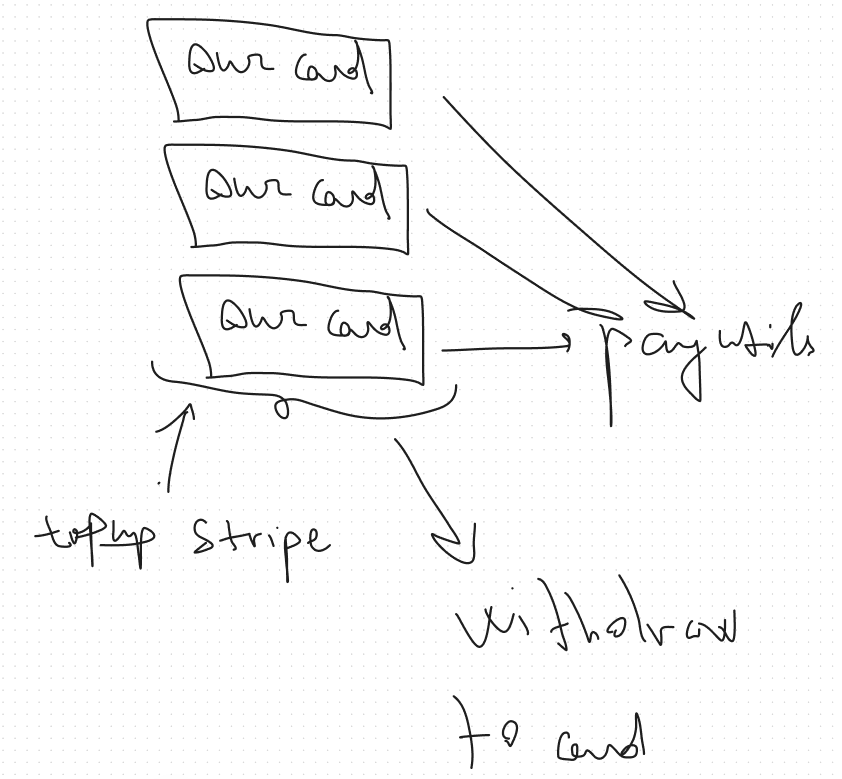 Our card
Our card
Our card
pay utils
topup stripe
withdraw
to card